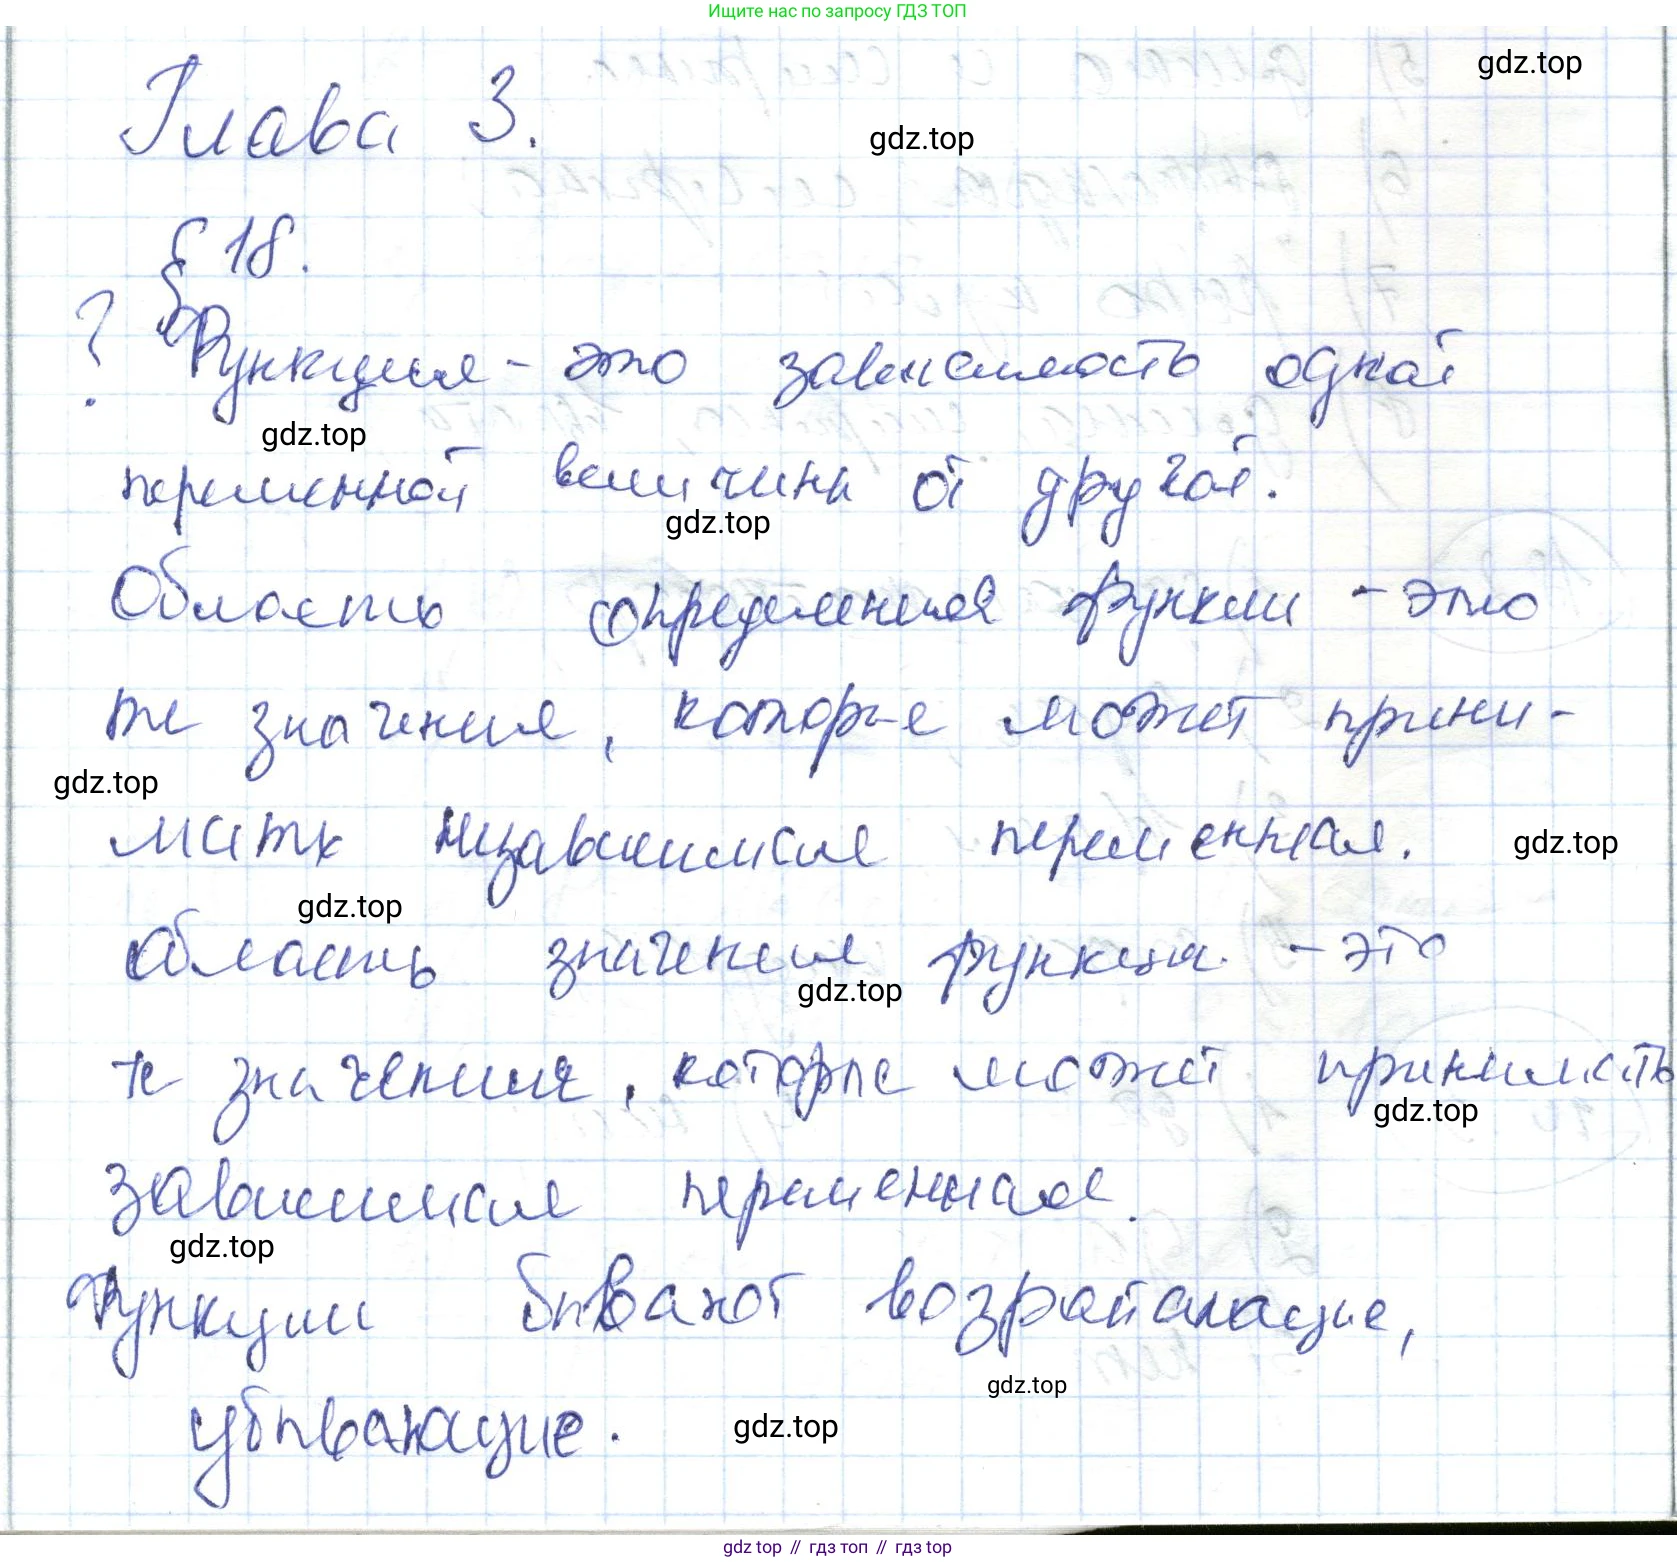 Ищите нас по запросу ГДЗ ТОП
gdz.top
Глава 3.
gdz.top
§ 18.
? Функция - это зависимость одной
gdz.top
переменной величины от другой.
gdz.top
Область определения функции - это
те значения, которые может прини-
gdz.top
мать независимая переменная.
gdz.top
gdz.top
Область значения функции - это
gdz.top
те значения, которые может принимать
gdz.top
зависимая переменная.
gdz.top
Функции бывают возрастающие,
gdz.top
убывающие.
gdz.top
gdz.top // гдз топ // гдз top